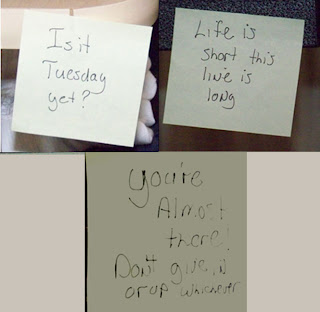 Is it
Tuesday
yet?
Life is
short this
line is
long
you're
Almost
there!
Don't give in
or up whichever